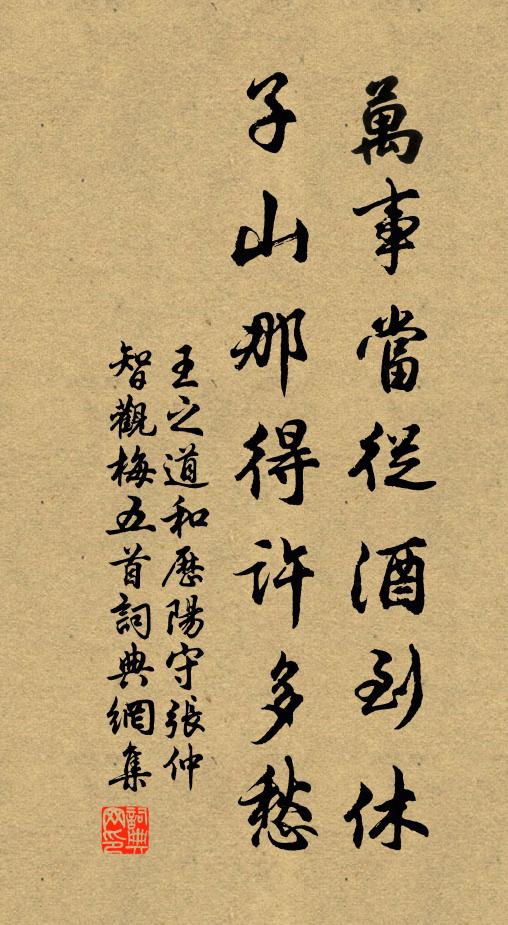 萬事當從酒到休
子山那得許多愁
王之道和歷陽守張仲
智觀梅五首詞典網集
詞典
网印